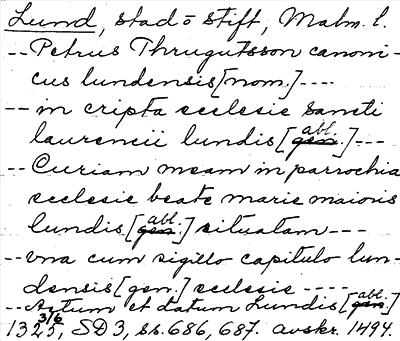 Lund, stad o stift, Malm. l.
-- Petrus Thrugutsson canoni-
cus lundensis [nom.] ----
-- in cripta ecclesie sancti
laurencii lundis [abl.] ---
-- Curiam meam in parrochia
ecclesie beate marie maioris
lundis [abl.] situatam ---
-- vna cum sigillo capitulo lun-
densis [gen.] ecclesie ----
-- Actum et datum Lundis [abl.]
1325, 3/6 SD 3, ss. 686, 687. avskr. 1494.